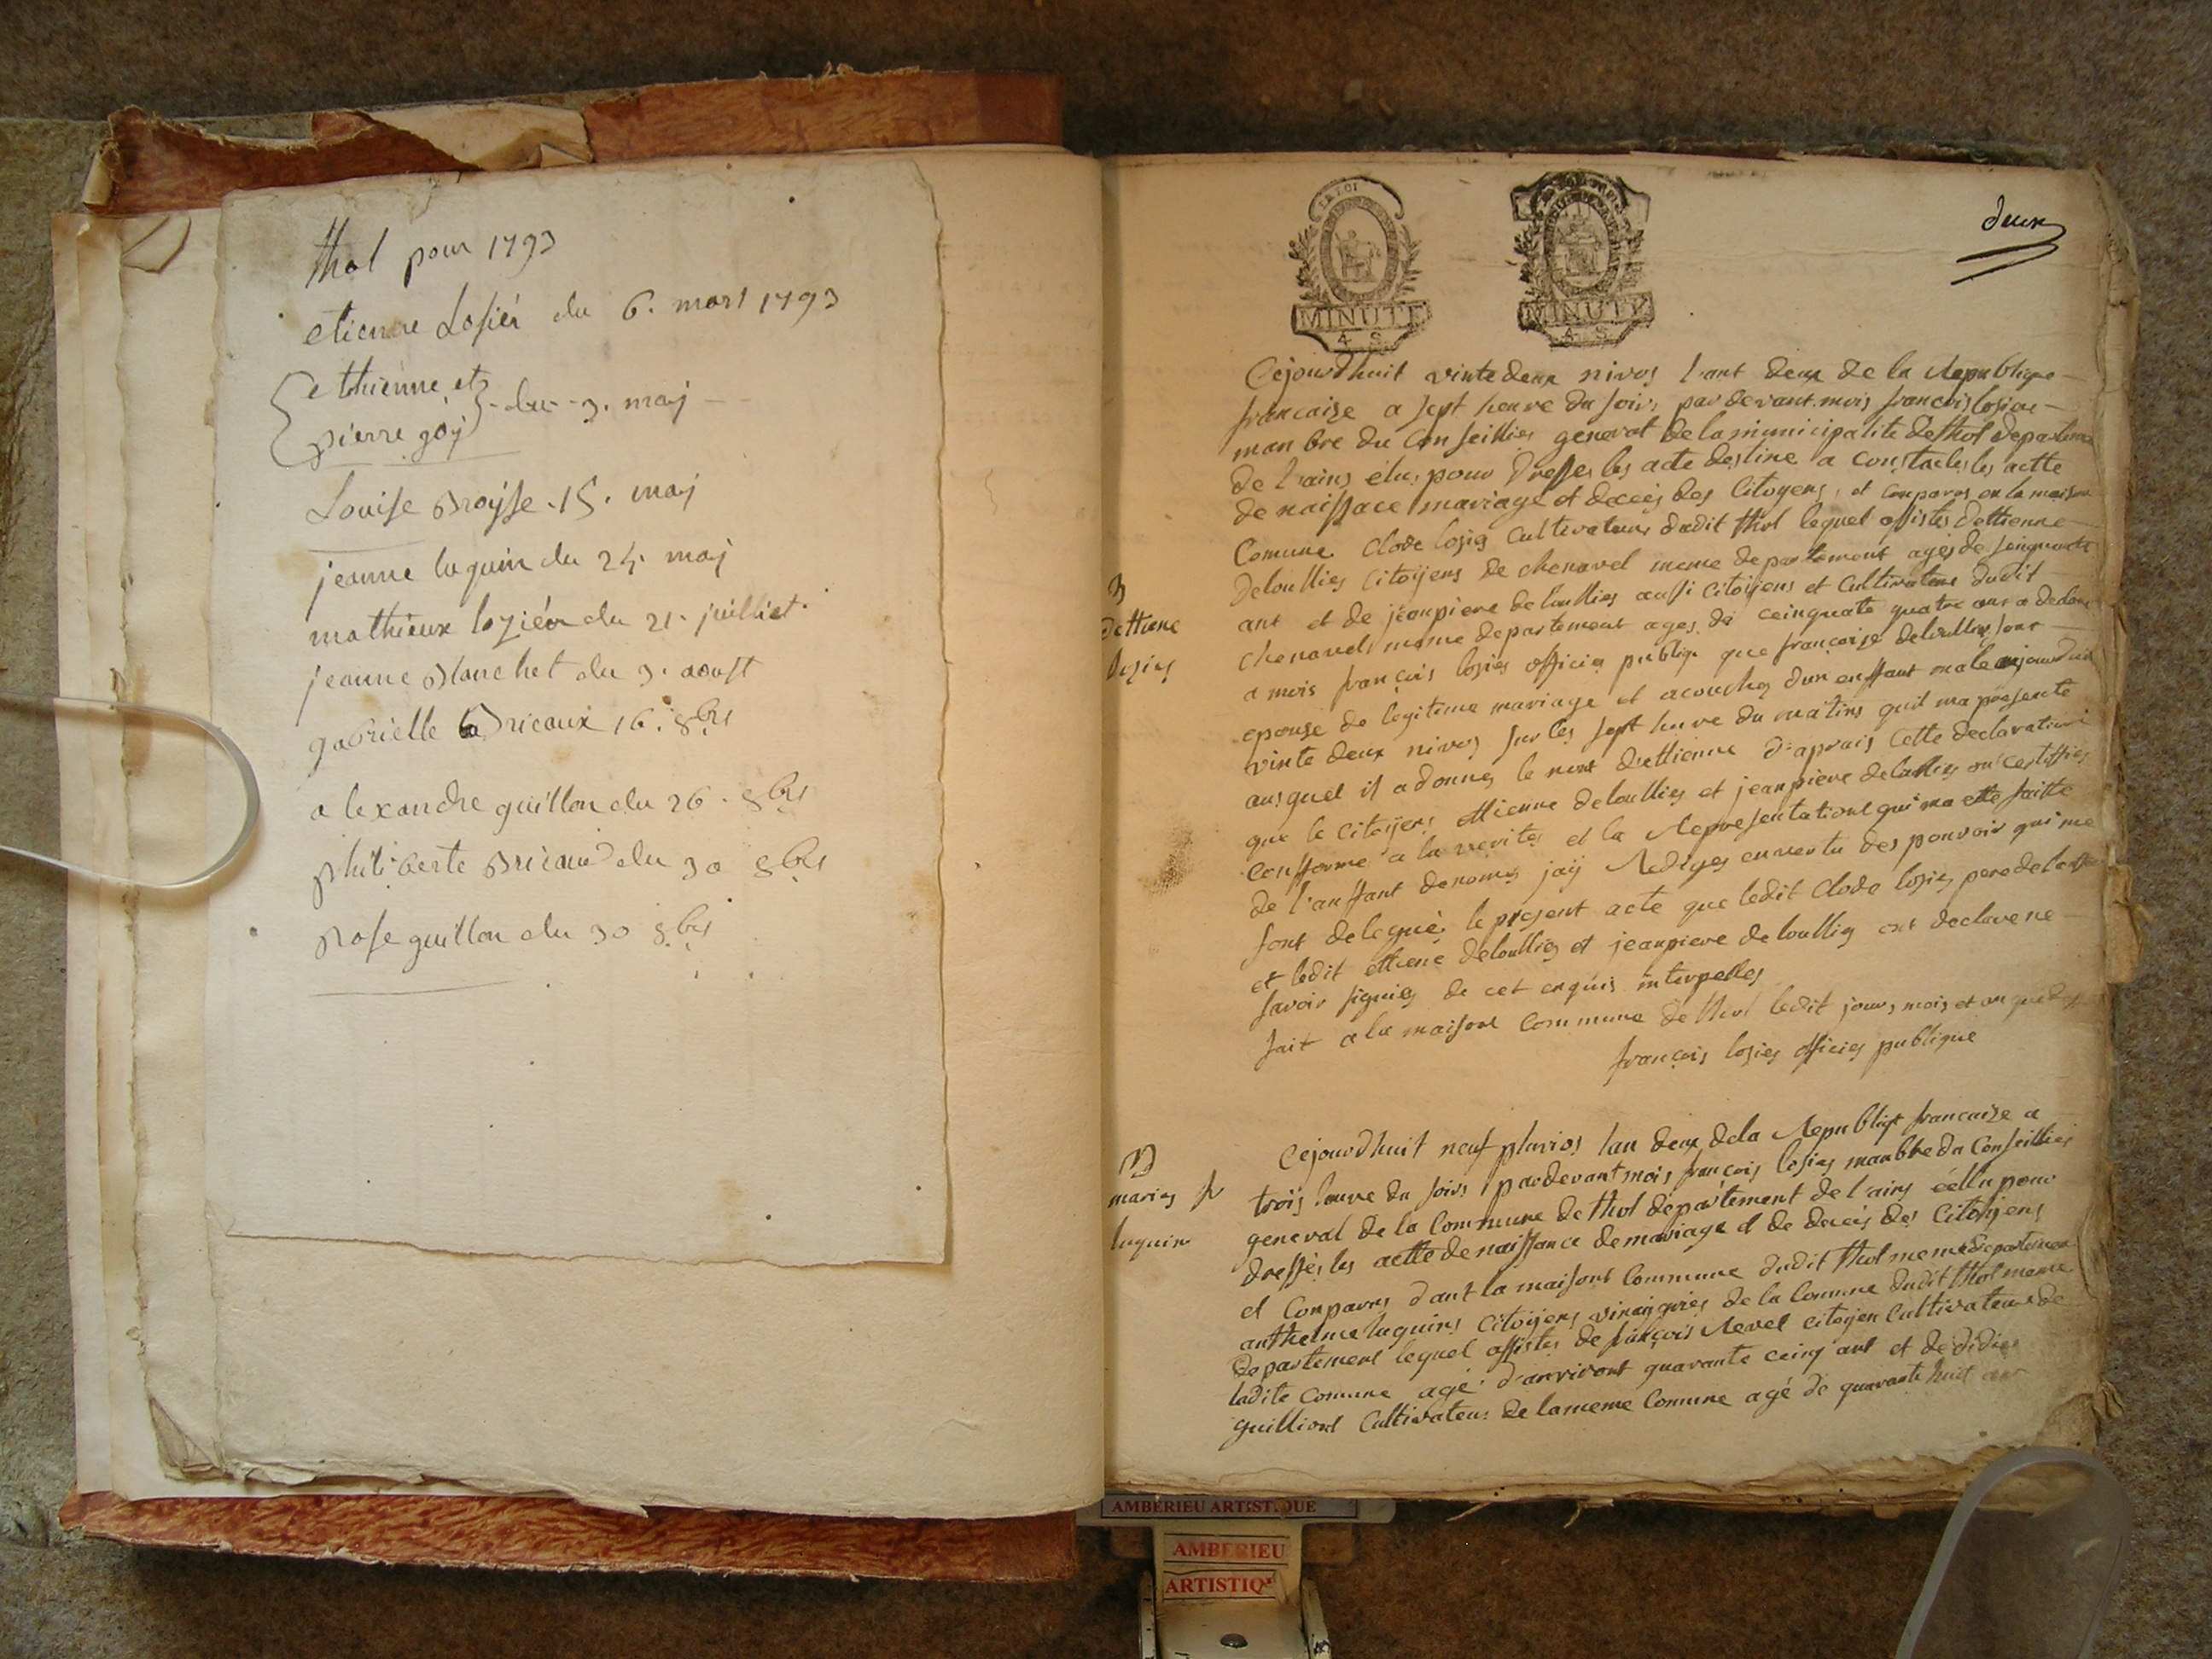 thol pour 1793
etienne Losiér du 6. mars 1793
ethienne et
pierre goÿ - du - 3. maj
Louise Broÿsse . 15. maj
jeanne luquin du 24. maj
mathieux loziér du 21. juilliet.
jeanne Blanchet du 3. aoust
gabrielle Bricaux 16. 8bre
alexandre guillon du 26. 8bre
philiberte Bricaud du 30 8bre
Rose guillon du 30 8bre
LA LOI
MINUTE
A. S.
MINUTE
A. S.
deux
Cejourdhuit vinte deux nivos l'ant deux de la Republique
francaize a sept heure du soir, par devant mois francois losier
manbre du Conseillier general de la municipalite de thol departement
de l'ains élus pour dresser les acte destine a constacter les actte
de naissace mariage et decéès des Citoyens, et conparus en la maison
Comune Clode losier Cultivateur dudit thol lequel assistes dettienne
deloullier Citoÿens de chenavel meme departement agés de
ant et de jéanpiere deloullier aussi Citoÿens et Cultivateur dudit
chenavel meme departement ages de ceinquate quatre ans a declare
a mois françois losier officier publiqe que francoise deloullier sont
epouse de legitime mariage et acouchez dun enffant male aujourdhui
vinte deux nivos sur les sept heure du matins quil ma présente
ausquel il a donnez le nom dettienne d'apprais cette declarations
que le citoÿens ettienne deloullier et jeanpiere deloullier on certiffier
conforme a la verites et la Representations qui ma ette faitte
de l'anffant denomes jaÿ Rediges en vertu des pouvoir qui me
sont delegués le present acte que ledit Clode losier pere de l'enffan
et ledit ettiene deloullier et jeanpiere deloullier ont declare ne
savoir signier de cet enquis interpelles
fait a la maisont commune de thol ledit jour, mois et an que
françois losier officier publique
N
dettiene
losier
Cejourdhuit neuf pluvios lan deux dela Republiqe francaize a
trois heure du soirs pardevant mois françois losier manbre du Conseillier
general de la Commune de thol département de l'ains éellu pour
dressér les actte de naissance de mariage et de deceis des Citoÿens
et Conparus dant la maisont Commune dudit thol meme departement
anthelme luquins Citoÿens vinaigrier de la Comune dudit thol meme
departement lequel assistes de françois Revel citoyen Cultivateur de
ladite Comune agé d'anviront quarante ceinq ant et de didier
guilliont Cultivateur de la meme Comune agé de quarante huit ans
N
marier fr
luquin
AMBERIEU ARTISTIQUE
AMBERIEU
ARTISTIQ